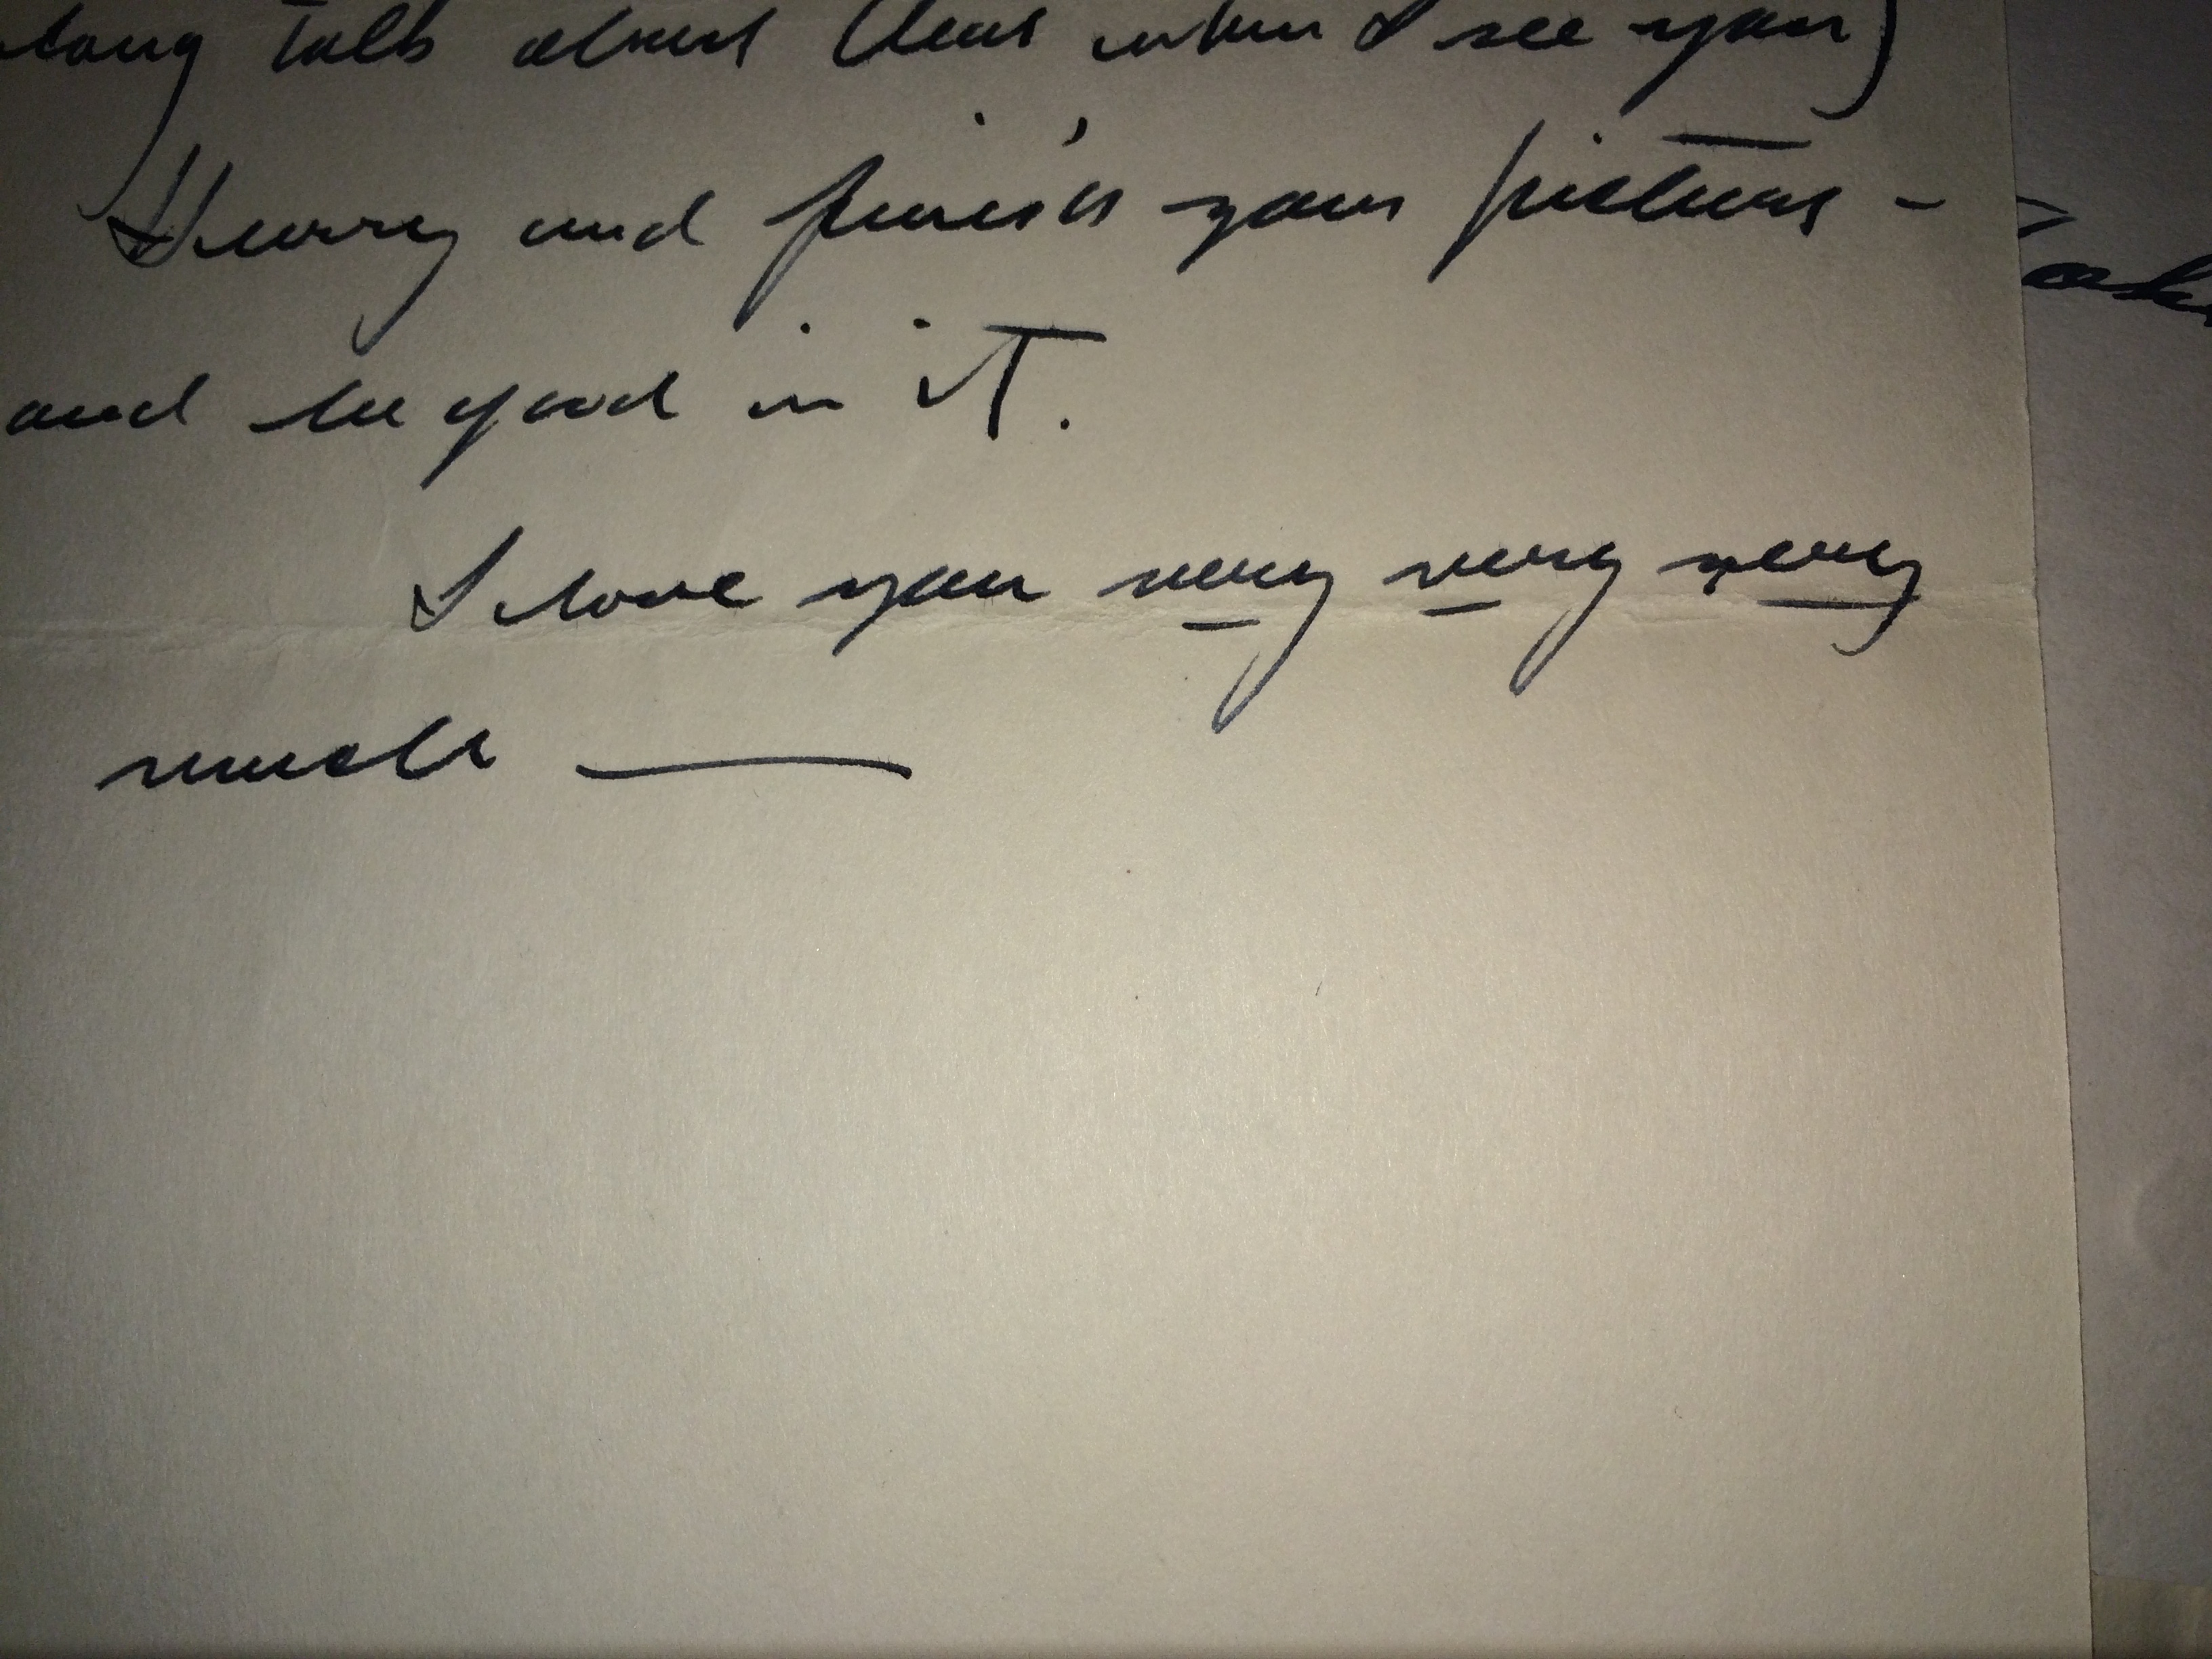 long talk about this when I see you)
Hurry and finish your picture -
and be good in it.
I love you very very very
much —